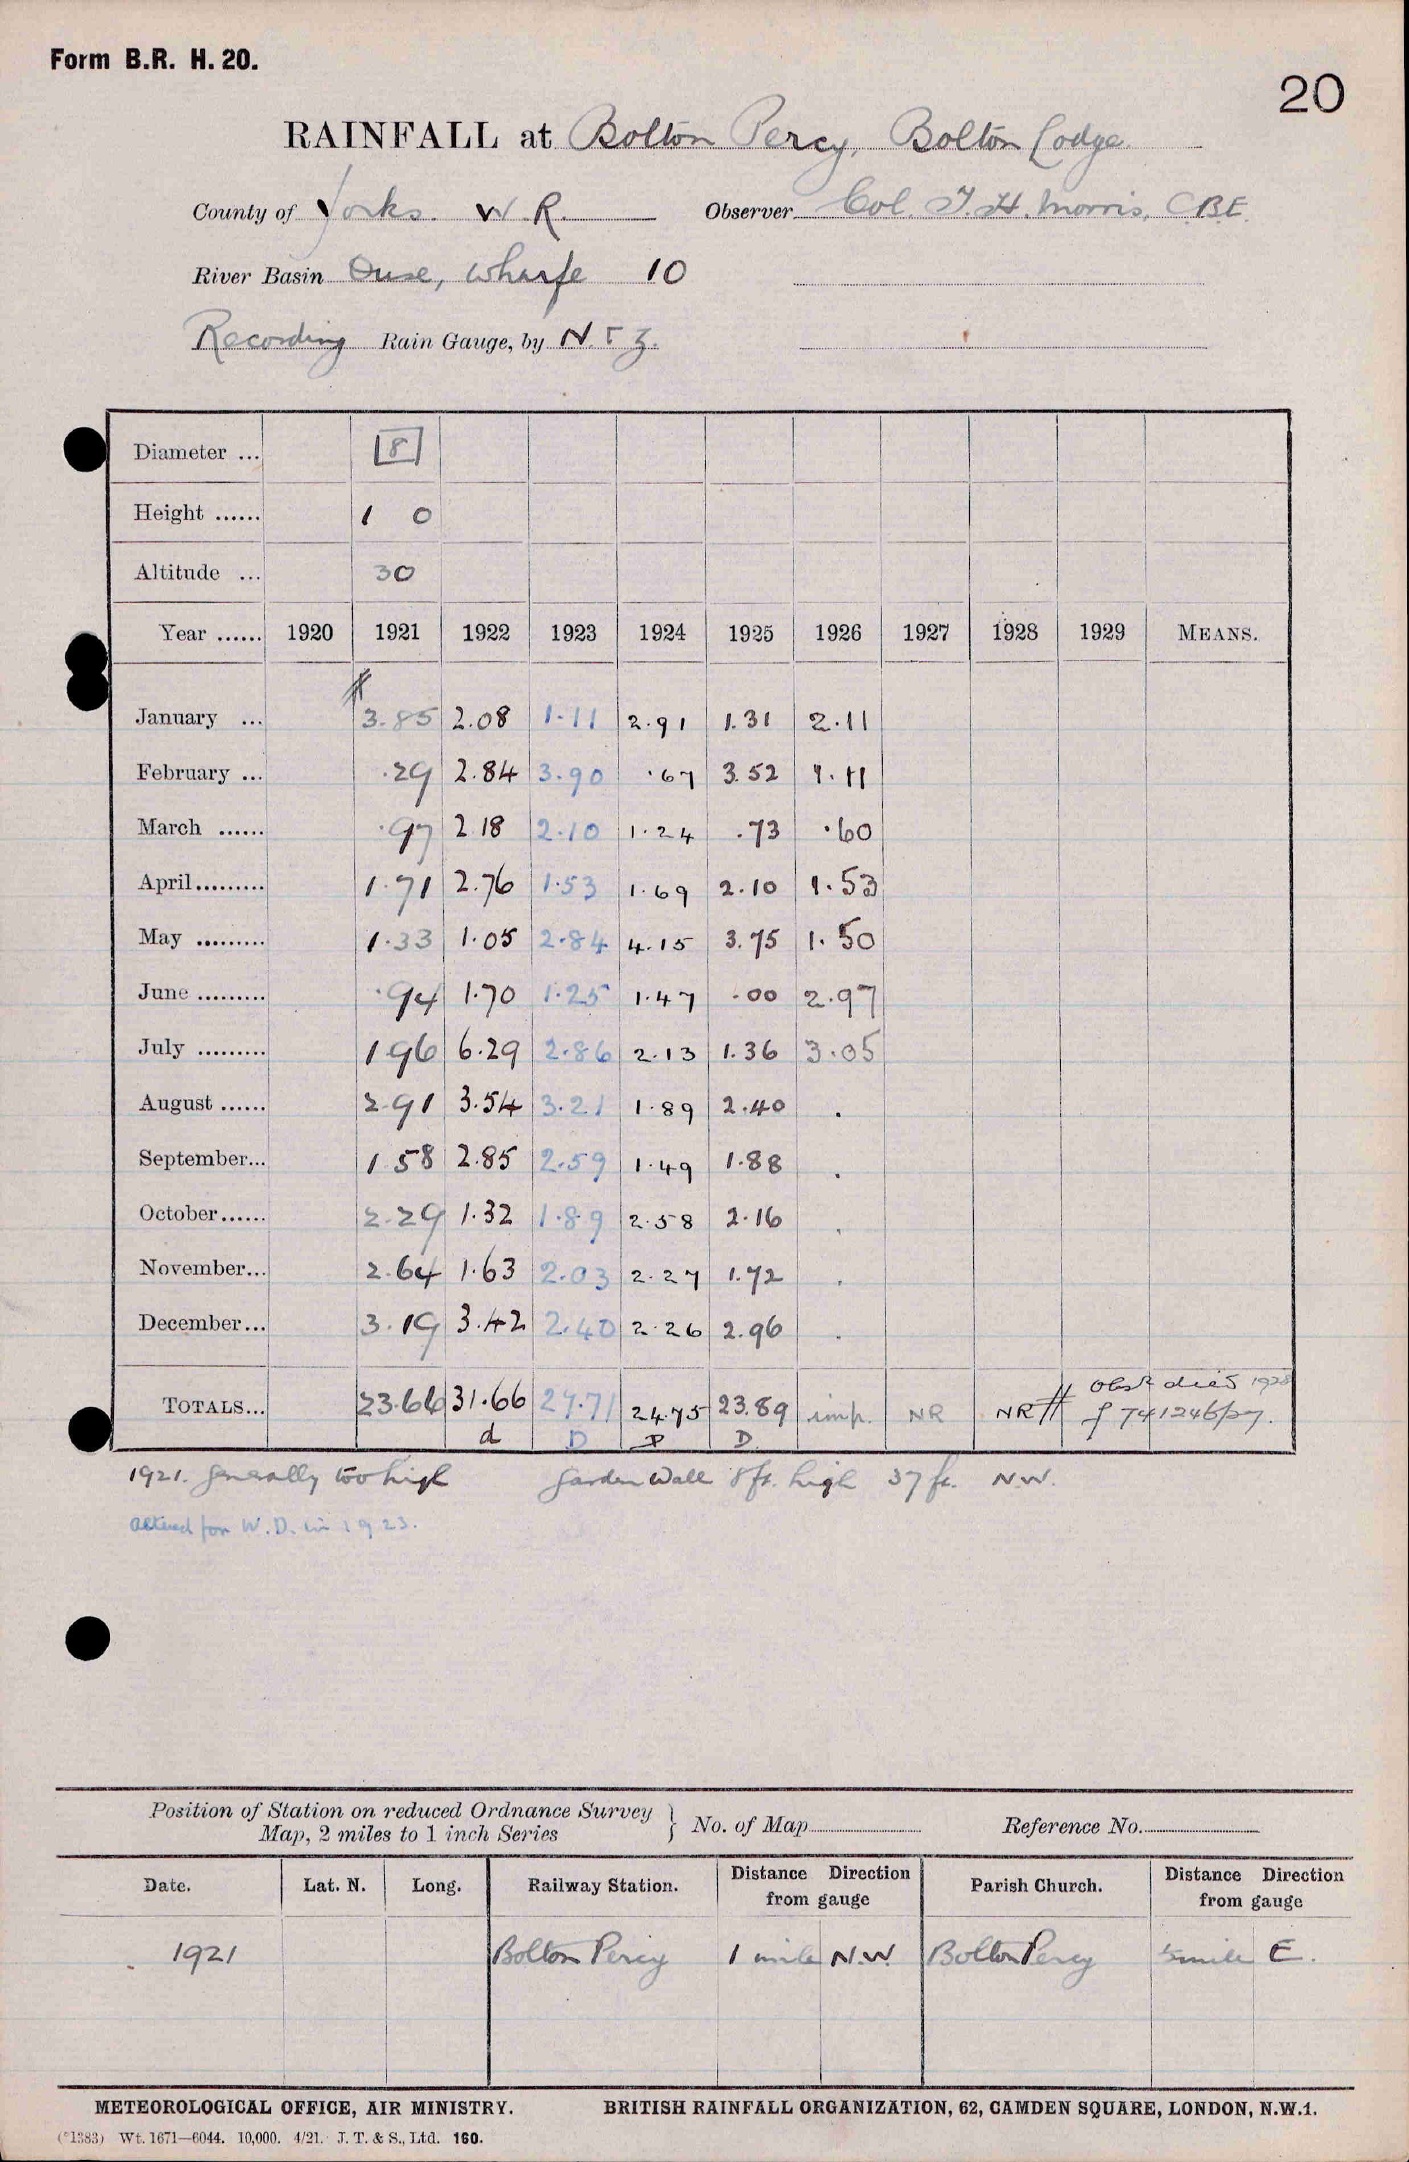 Form B.R. H. 20.
20
RAINFALL at Bolton Percy, Bolton Lodge.
County of Yorks. W.R. Observer Col. T. H. Morris, CBE.
River Basin Ouse, Wharfe 10
Recording Rain Gauge, by N. & Z.
Diameter ... 8
Height ...... 1 0
Altitude ... 30
Year ...... 1920 1921 1922 1923 1924 1925 1926 1927 1928 1929 MEANS.
January ... 3.85 2.08 1.11 2.91 1.31 2.11
February ... .29 2.84 3.90 .67 3.52 1.11
March ...... .97 2 18 2.10 1.24 .73 .60
April......... 1.71 2.76 1.53 1.69 2.10 1.53
May ......... 1.33 1.05 2.84 4.15 3.75 1.50
June ......... .94 1.70 1.25 1.47 .00 2.97
July ......... 1 96 6.29 2.86 2.13 1.36 3.05
August ...... 2.91 3.54 3.21 1.89 2.40 .
September... 1 58 2.85 2.59 1.49 1.88 .
October...... 2.29 1.32 1.89 2.58 2.16 .
November... 2.64 1.63 2.03 2.27 1.72 .
December... 3.19 3.42 2.40 2.26 2.96 .
TOTALS... 23.66 31.66 27.71 24.75 23.89 imp. NR NR # Obsr died 1928
f 741246/27.
d D D D.
1921. generally too high garden wall 8ft. high 37 ft. N.W.
altered for W.D. in 1923.
Position of Station on reduced Ordnance Survey
Map, 2 miles to 1 inch Series } No. of Map Reference No.
Date. Lat. N. Long. Railway Station. Distance Direction from gauge Parish Church. Distance Direction from gauge
1921 Bolton Percy 1 mile N.W. Bolton Percy ½ mile E.
METEOROLOGICAL OFFICE, AIR MINISTRY. BRITISH RAINFALL ORGANIZATION, 62, CAMDEN SQUARE, LONDON, N.W.1.
(*1383) Wt. 1671—6044. 10,000. 4/21. J. T. & S., Ltd. 160.